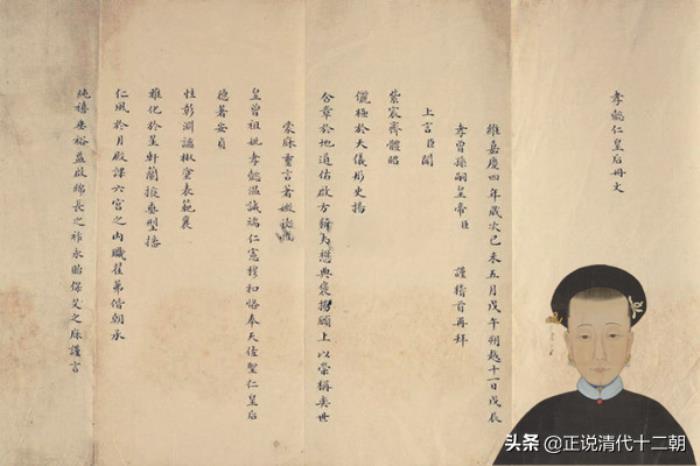 孝懿仁皇后冊文
維嘉慶四年歲次己未五月戊午朔越十一日戊辰
孝曾孫嗣皇帝臣 謹稽首再拜
上言臣聞
紫宸齊體昭
儷極於天儀彤史揚
含章於地道佑啟方 懋典褒揚願上以崇稱奕世
蒙庥重言著媺
皇曾祖妣孝懿溫誠端仁憲穆和恪奉天佐聖仁皇后
德著安貞
性彰淵謐椒塗表範襄
雅化於星軒蘭掖垂型播
仁風於月殿課六宮之內職 偕朝承
純禧垂裕益啟綿長之祚永貽保艾之庥謹言
头条 @正说清代十二朝